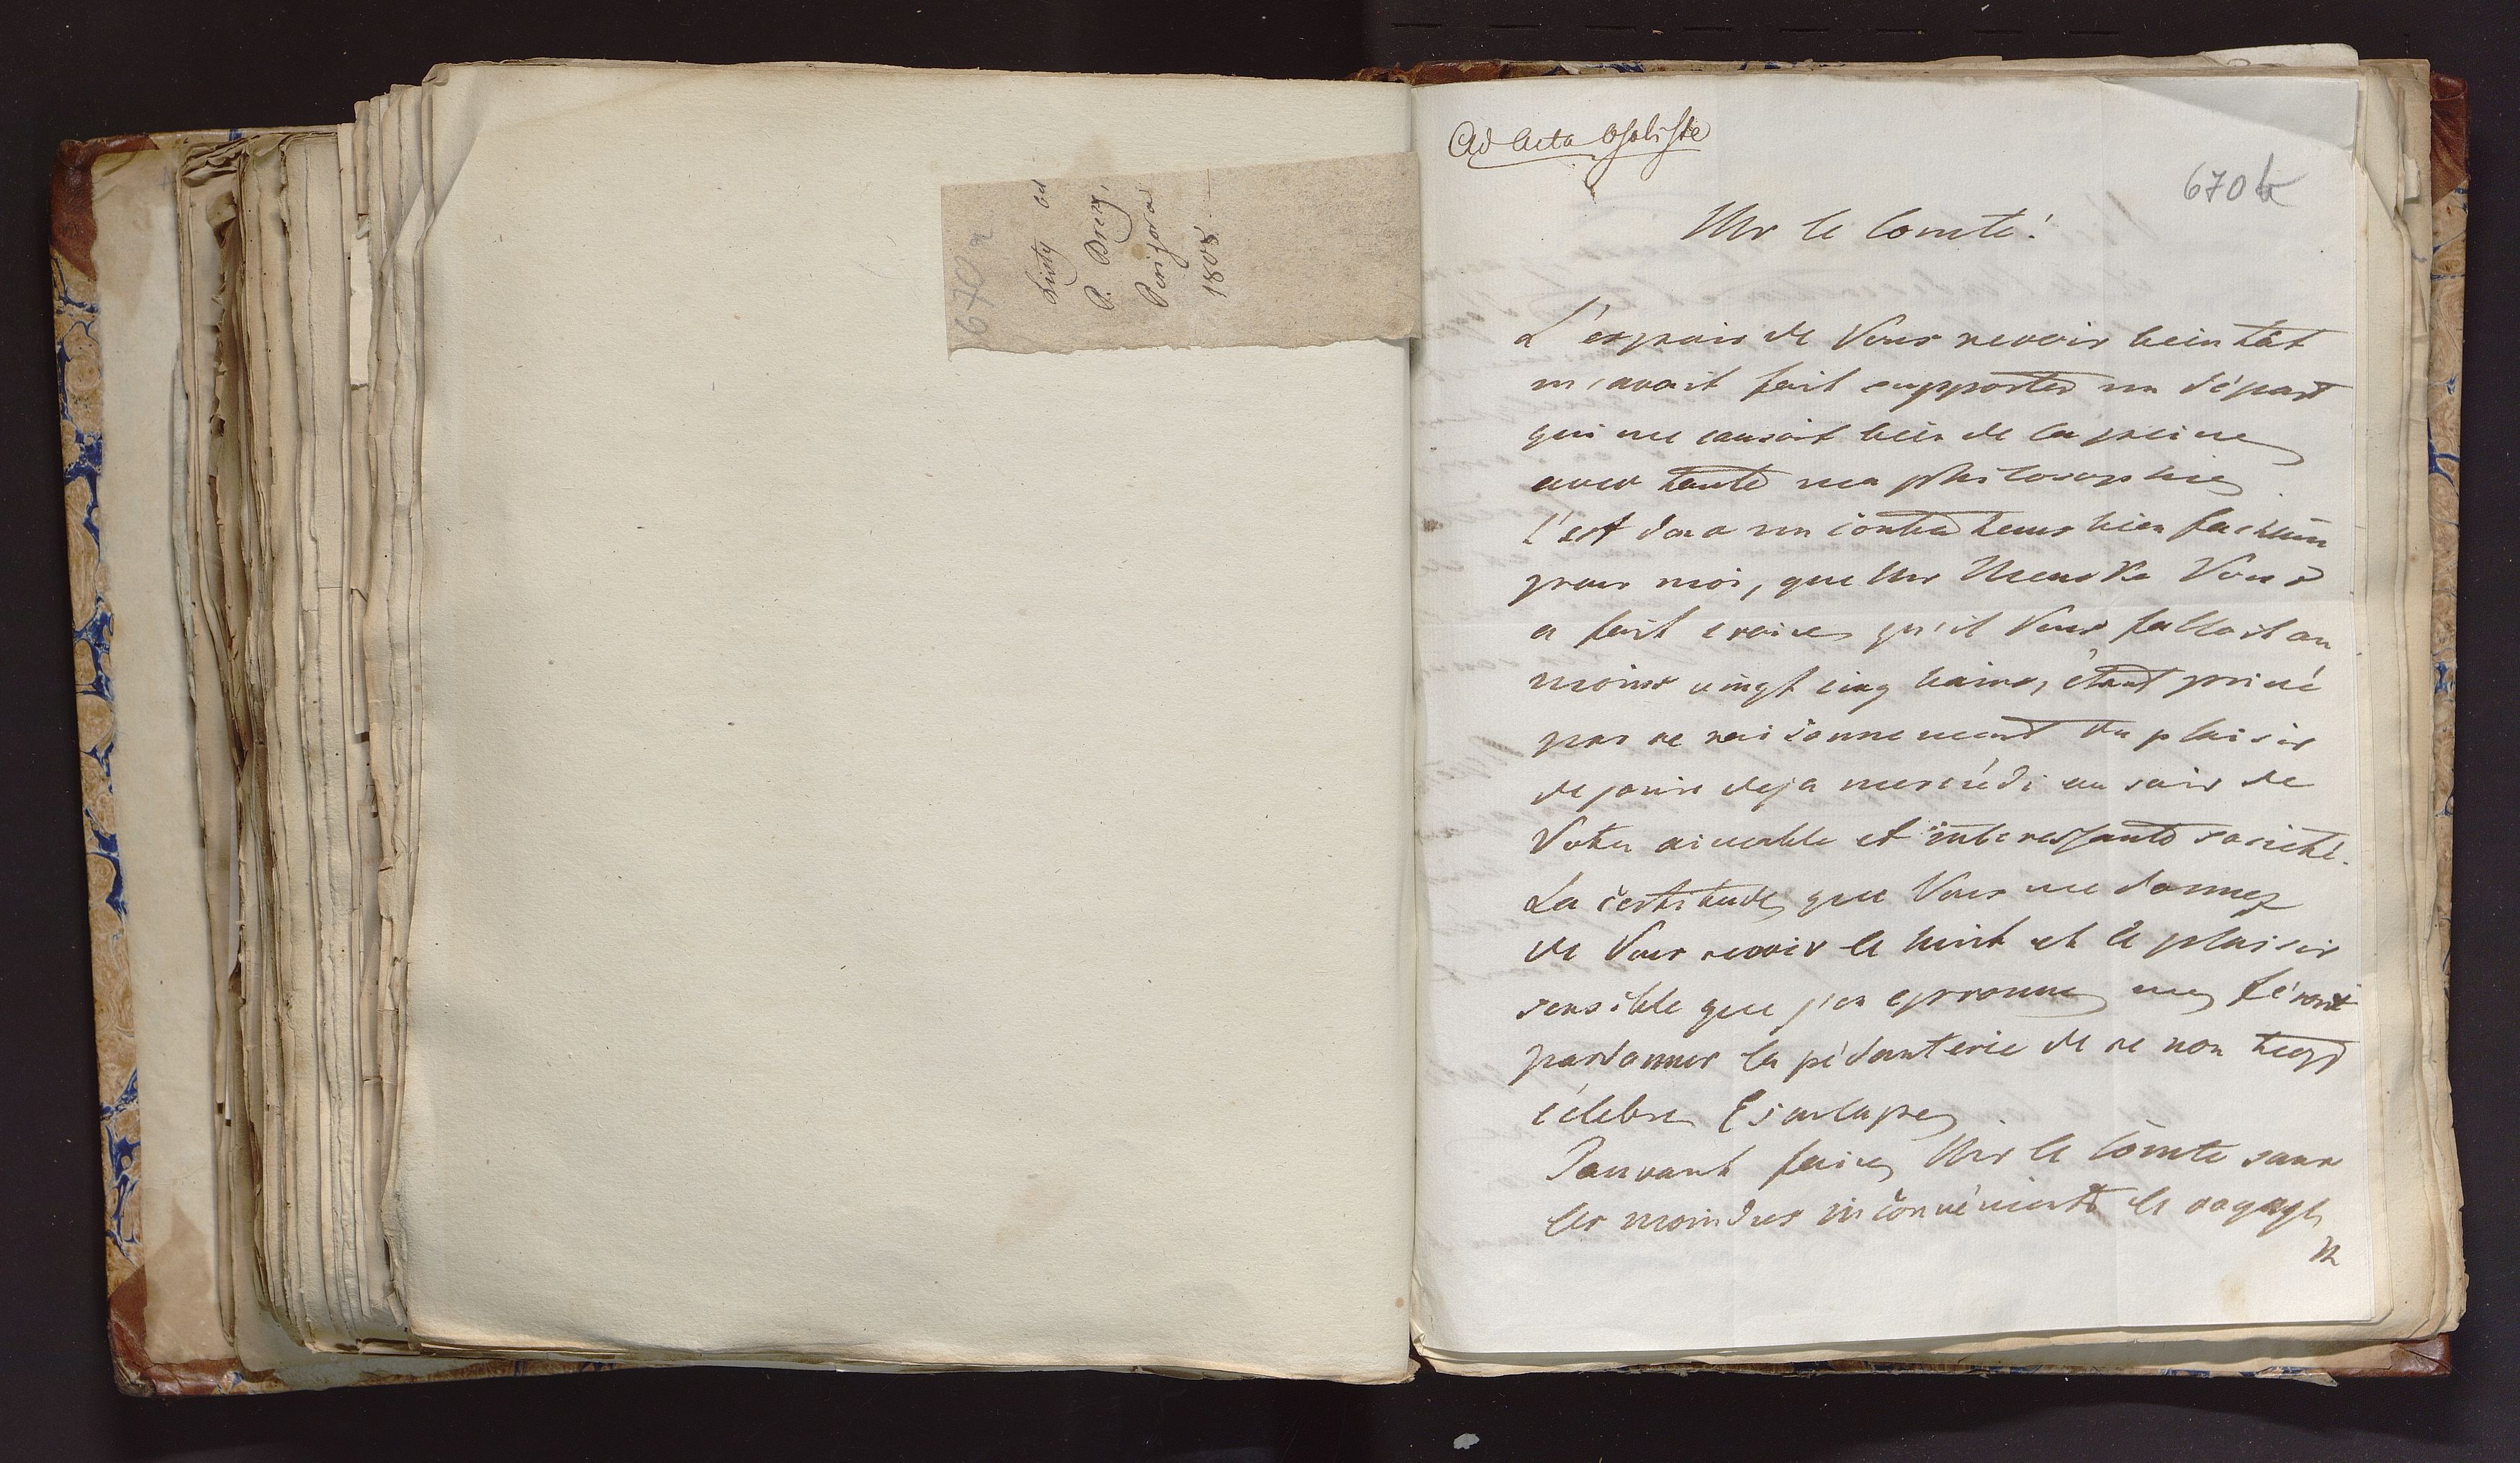 670 a
Listy od
P. Brezy,
Pani jora
1808.
Ad Acta Osobiste
670 b
Mr le Comte!
L'espoir de Vous revoir beintôt
m'avait fait supporter un départ
qui me causait bein de la peine
avec toute ma philosophie
C'est donc un contretems bien facheux
pour moi, que Mr Vous
a fait croire qu'il Vous fallait au
moins vingt cinq bains, étant privé
par ce raisonnement du plaisir
de jouir deja mercrédi au soir de
Votre aimable et interessante societé.
La certitude que Vous me donnez
de Vous revoir le huit et le plaisir
sensible que j'en eprouve me féront
pardonner la pédanterie de ce non trop
célebre Esculape
Pouvant faire Mr le Comte sans
les moindres inconvénients le voyage